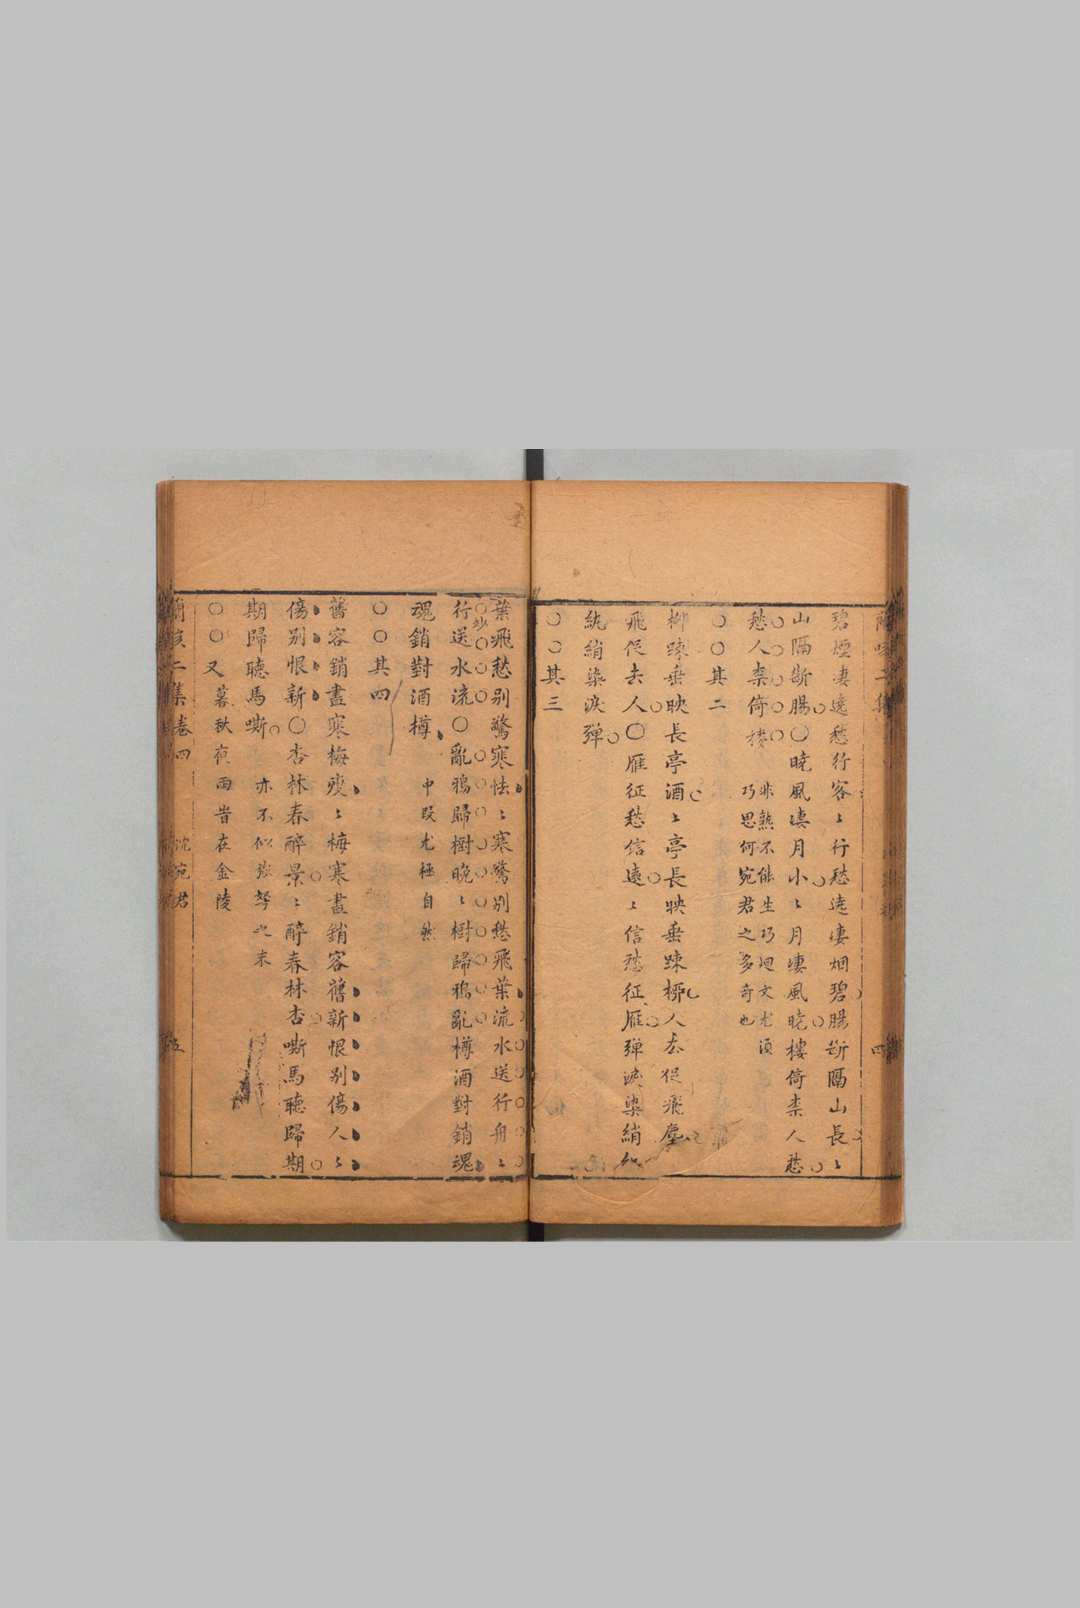 碧煙凄遶愁行客〻行愁遶凄烟碧腸斷隔山長〻
山隔斷腸〇曉風凄月小〻月凄風曉樓倚柰人愁
愁人柰倚樓
非熟不能生巧迴文尤須
巧思何宛君之多奇也
〇〇其二
柳疎垂映長亭酒〻亭長映垂疎柳人去從飛塵〻
飛從去人〇雁征愁信遠〻信愁征雁彈淚染綃紈
紈綃染淚彈
〇〇其三
葉飛愁別驚寒怯〻寒驚別愁飛葉流水送行舟〻
妙
行送水流〇亂鴉歸樹晚〻樹歸鴉亂樽酒對銷魂
魂銷對酒樽 中段尤極自然
〇〇其四
舊容銷盡寒梅瘦〻梅寒盡銷容舊新恨別傷人〻
傷別恨新〇杏林春醉景〻醉春林杏嘶馬聽歸期
期歸聽馬嘶 亦不似強弩之末
〇〇又 暮秋夜雨昔在金陵
蘭咳二集卷四 沈宛君 五